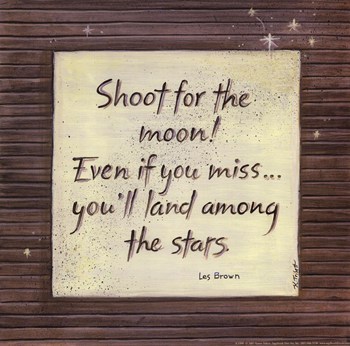 Shoot for the
moon!
Even if you miss...
you'll land among
the stars.
Les Brown